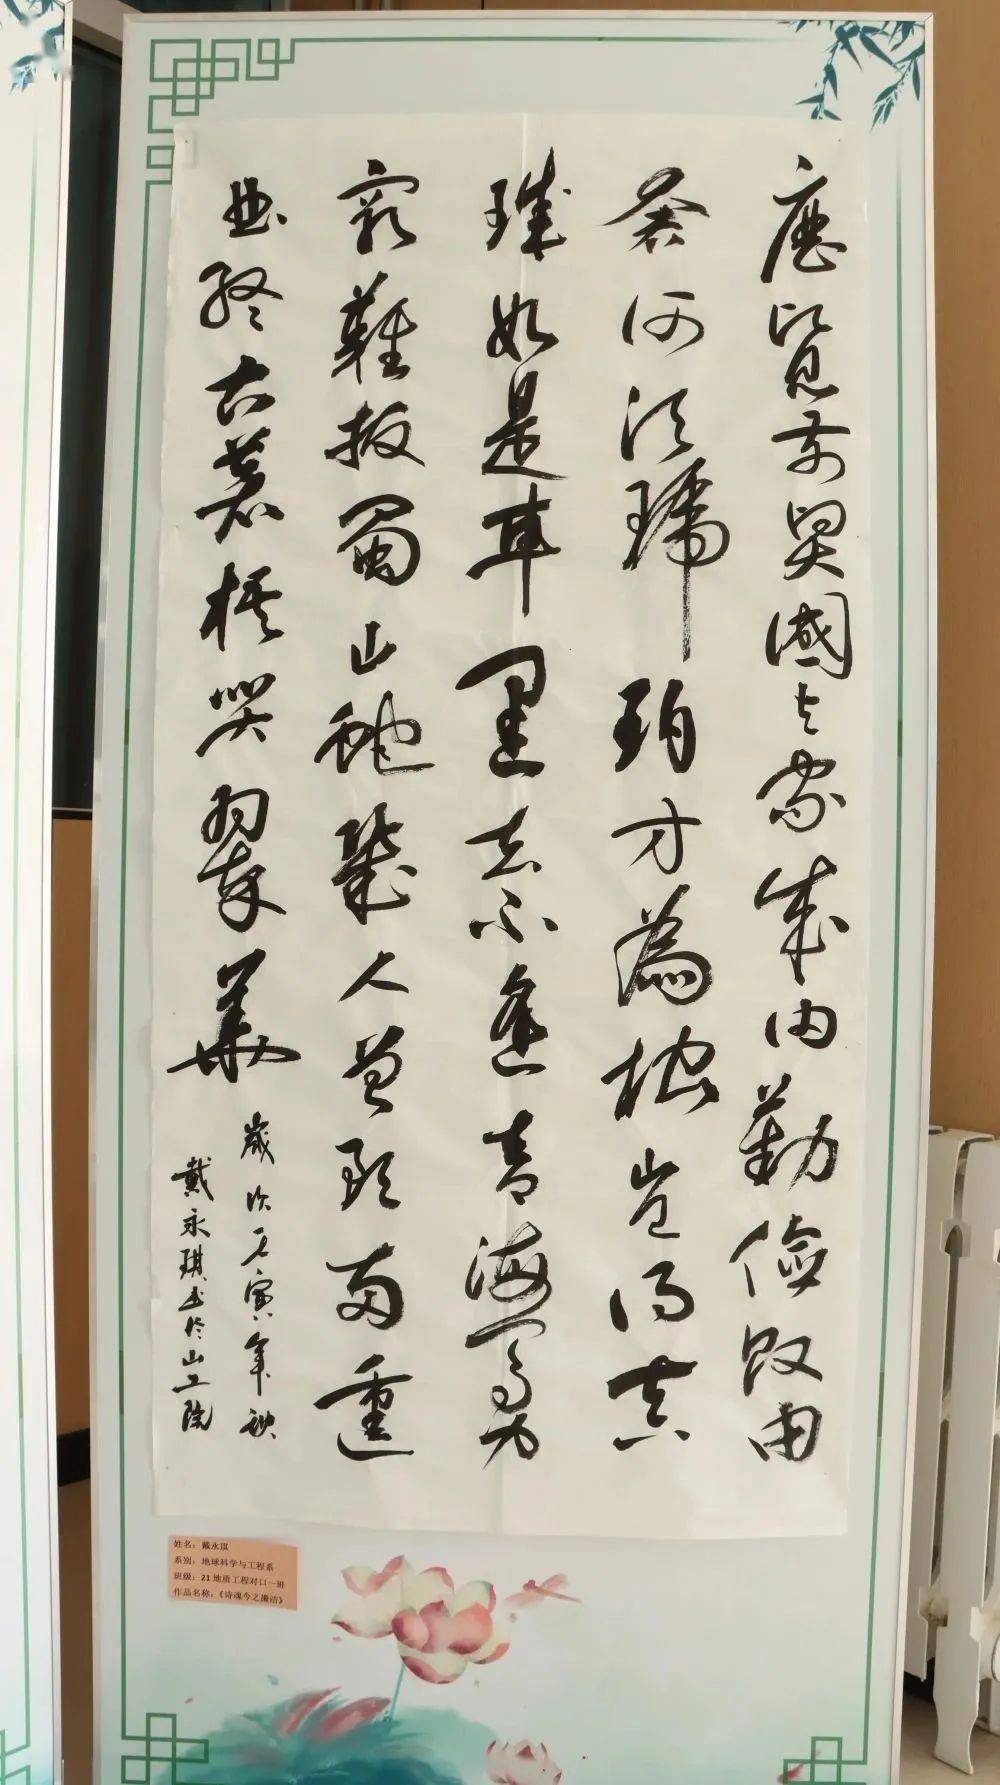 歷覽前賢國与家成由勤儉败由
奢何須琥珀方為枕豈得真
珠始是車運去不逢青海馬力
窮難拔蜀山蛇幾人曾預南薰
曲終古蒼梧哭翠華
歲次壬寅年秋
戴永琪书於山工院
姓名：戴永琪
系别：地球科学与工程系
班级：21 地质工程对口一班
作品名称：《诗魂今之廉洁》